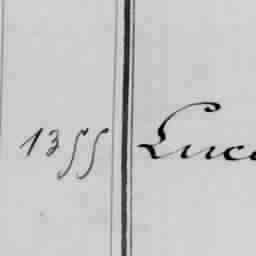 1355 Luca